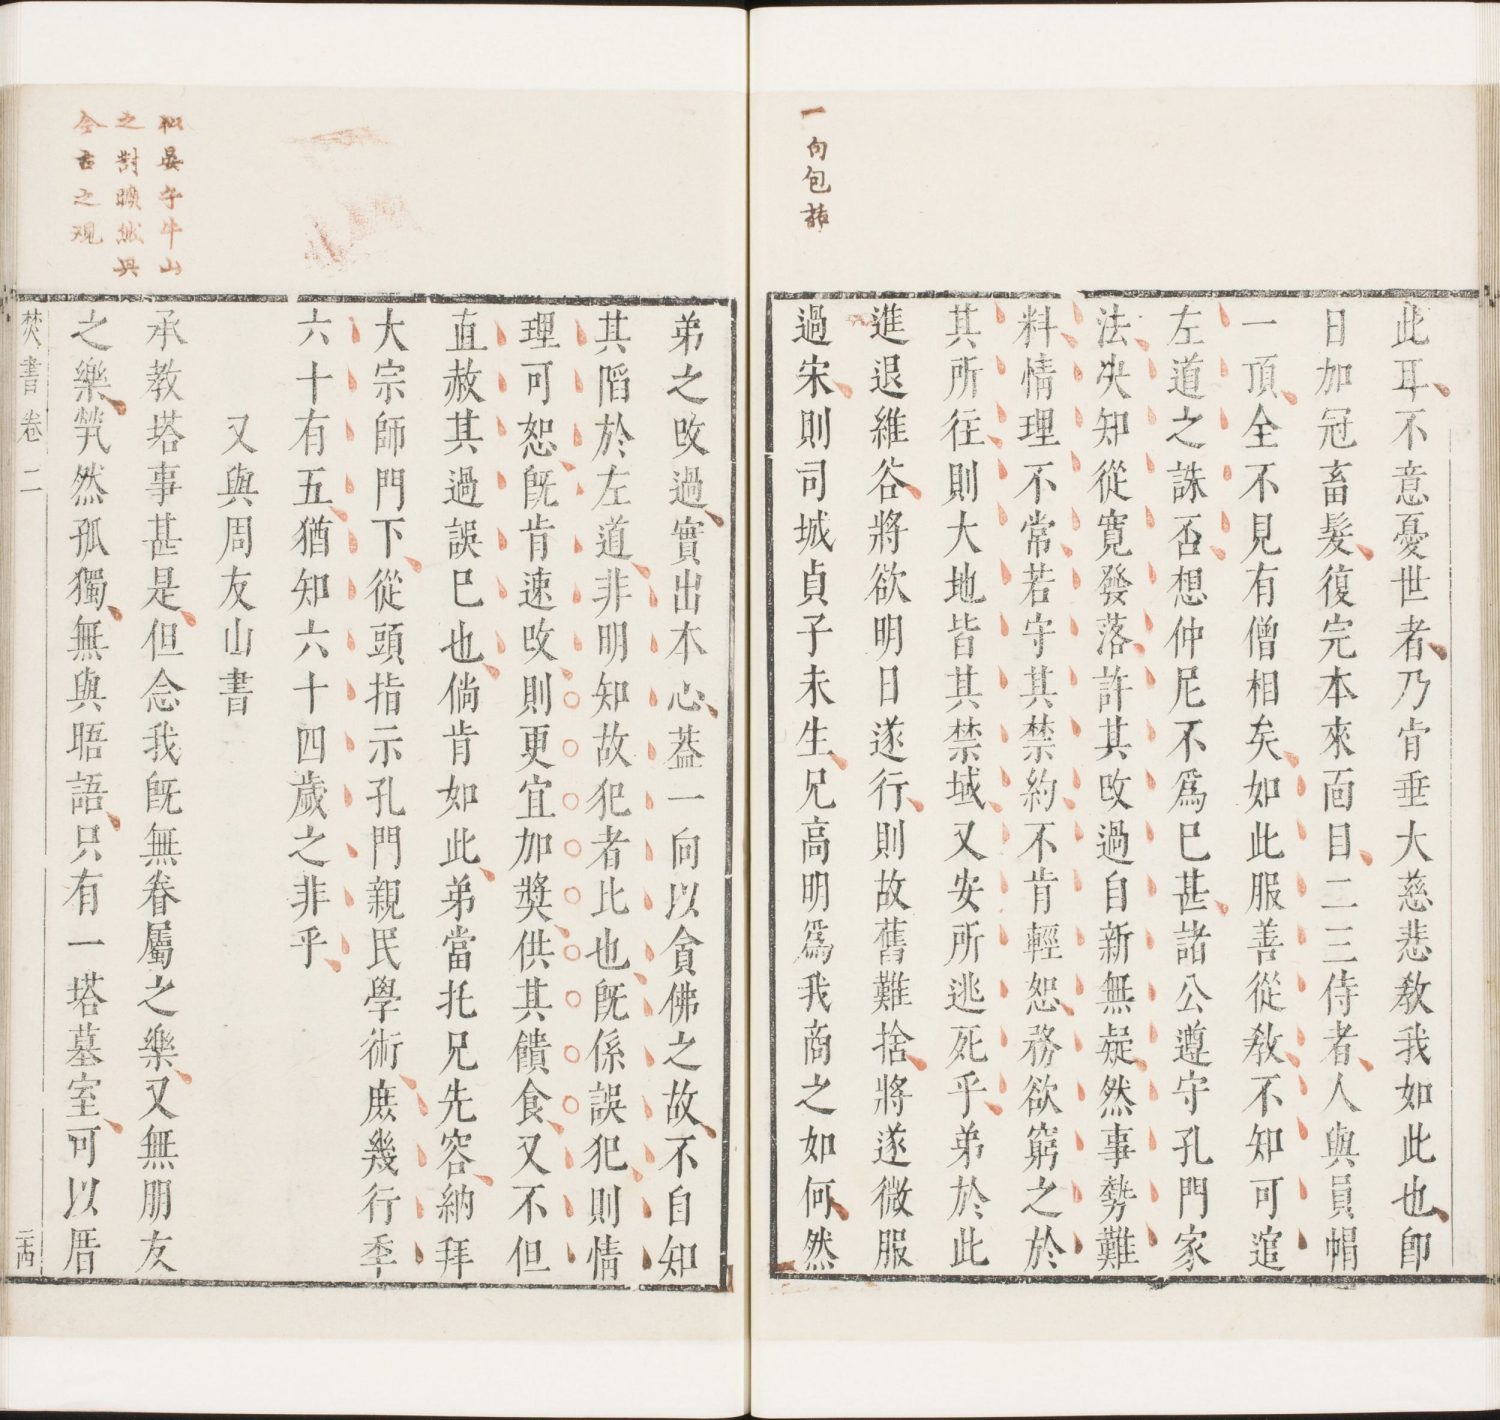 一向包藉
此耳不意憂世者乃肯垂大慈悲教我如此也即
日加冠畜髮復完本來面目二三侍者人與員帽
一頂全不見有僧相矣如此服善從教不知可逭
左道之誅否想仲尼不爲已甚諸公遵守孔門家
法决知從寬發落許其改過自新無疑然事勢難
料情理不常若守其禁約不肯輕恕務欲窮之於
其所往則大地皆其禁域又安所逃死乎弟於此
進退維谷將欲明日遂行則故舊難捨將遂微服
過宋則司城貞子未生兄高明爲我商之如何然
似晏子牛山
之對曠絨具
今古之观
弟之改過實出本心葢一向以貪佛之故不自知
其陷於左道非明知故犯者比也旣係誤犯則情
理可恕旣肯速改則更宜加奬供其饋食又不但
直赦其過誤已也倘肯如此弟當托兄先容納拜
大宗師門下從頭指示孔門親民學術庶幾行季
六十有五猶知六十四歲之非乎
又與周友山書
承教塔事甚是但念我旣無眷屬之樂又無朋友
之樂煢然孤獨無與晤語只有一塔墓室可以厝
焚書 卷二
二十四